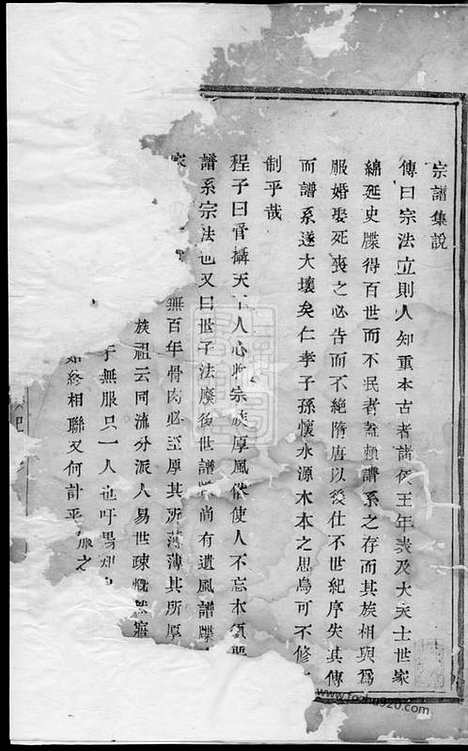 宗譜集說
傳曰宗法立則人知重本古者諸侯王年表及大夫士世家
綿延史牒得百世而不泯者蓋賴譜系之存而其族相與爲
服婚娶死喪之必告而不絕隋唐以後仕不世紀序失其傳
而譜系遂大壞矣仁孝子孫懷水源木本之思烏可不修
制乎哉
程子曰管攝天下人心收宗族厚風俗使人不忘本須
譜系宗法也又曰世子法廢後世譜牒尚有遺風譜牒
家 無百年骨肉必至厚其所薄薄其所厚
族祖云同流分派人易世疎慨然寤
于無服只一人也吁
始終相聯又何計乎 服之
www.fozhu920.com